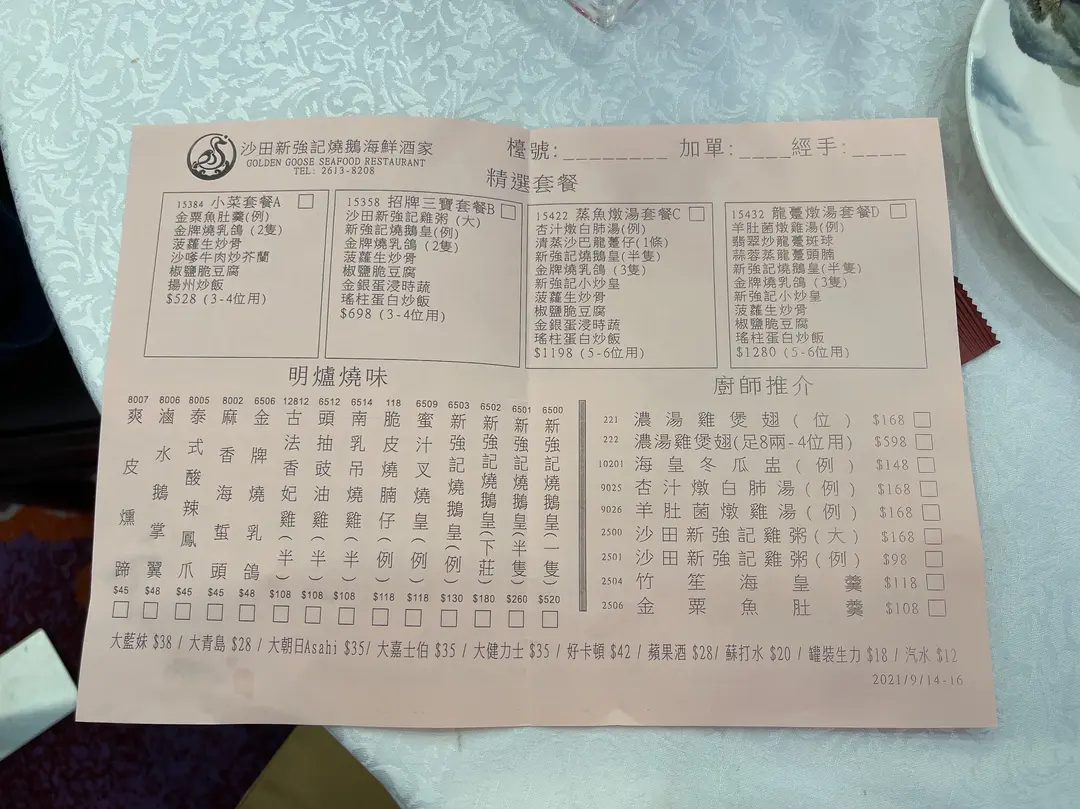 沙田新強記燒鵝海鮮酒家
GOLDEN GOOSE SEAFOOD RESTAURANT
TEL: 2613-8208
檯號:________ 加單:____經手:____
精選套餐
15384 小菜套餐A
金粟魚肚羹(例)
金牌燒乳鴿 (2隻)
菠蘿生炒骨
沙嗲牛肉炒芥蘭
椒鹽脆豆腐
揚州炒飯
$528 (3-4位用)
15358 招牌三寶套餐B
沙田新強記雞粥 (大)
新強記燒鵝皇(例)
金牌燒乳鴿 (2隻)
菠蘿生炒骨
椒鹽脆豆腐
金銀蛋浸時蔬
瑤柱蛋白炒飯
$698 (3-4位用)
15422 蒸魚燉湯套餐C
杏汁燉白肺湯(例)
清蒸沙巴龍躉仔(1條)
新強記燒鵝皇(半隻)
金牌燒乳鴿 (3隻)
新強記小炒皇
菠蘿生炒骨
椒鹽脆豆腐
金銀蛋浸時蔬
瑤柱蛋白炒飯
$1198 (5-6位用)
15432 龍躉燉湯套餐D
羊肚菌燉雞湯(例)
翡翠炒龍躉斑球
蒜蓉蒸龍躉頭腩
新強記燒鵝皇(半隻)
金牌燒乳鴿 (3隻)
新強記小炒皇
菠蘿生炒骨
椒鹽脆豆腐
瑤柱蛋白炒飯
$1280 (5-6位用)
明爐燒味
8007 爽皮燻蹄 $45
8006 滷水鵝掌翼 $48
8005 泰式酸辣鳳爪 $45
8002 麻香海蜇頭 $45
6506 金牌燒乳鴿 $48
12812 古法香妃雞(半) $108
6512 頭抽豉油雞(半) $108
6514 南乳吊燒雞(半) $108
118 脆皮燒腩仔(例) $118
6509 蜜汁叉燒皇(例) $118
6503 新強記燒鵝皇(例) $130
6502 新強記燒鵝皇(下莊) $180
6501 新強記燒鵝皇(半隻) $260
6500 新強記燒鵝皇(一隻) $520
廚師推介
221 濃湯雞煲翅(位) $168
222 濃湯雞煲翅(足8兩-4位用) $598
10201 海皇冬瓜盅(例) $148
9025 杏汁燉白肺湯(例) $168
9026 羊肚菌燉雞湯(例) $168
2500 沙田新強記雞粥(大) $168
2501 沙田新強記雞粥(例) $98
2504 竹笙海皇羹 $118
2506 金粟魚肚羹 $108
大藍妹 $38 / 大青島 $28 / 大朝日Asahi $35/ 大嘉士伯 $35 / 大健力士 $35 / 好卡頓 $42 / 蘋果酒 $28/ 蘇打水 $20 / 罐裝生力 $18 / 汽水 $12
2021/9/14-16